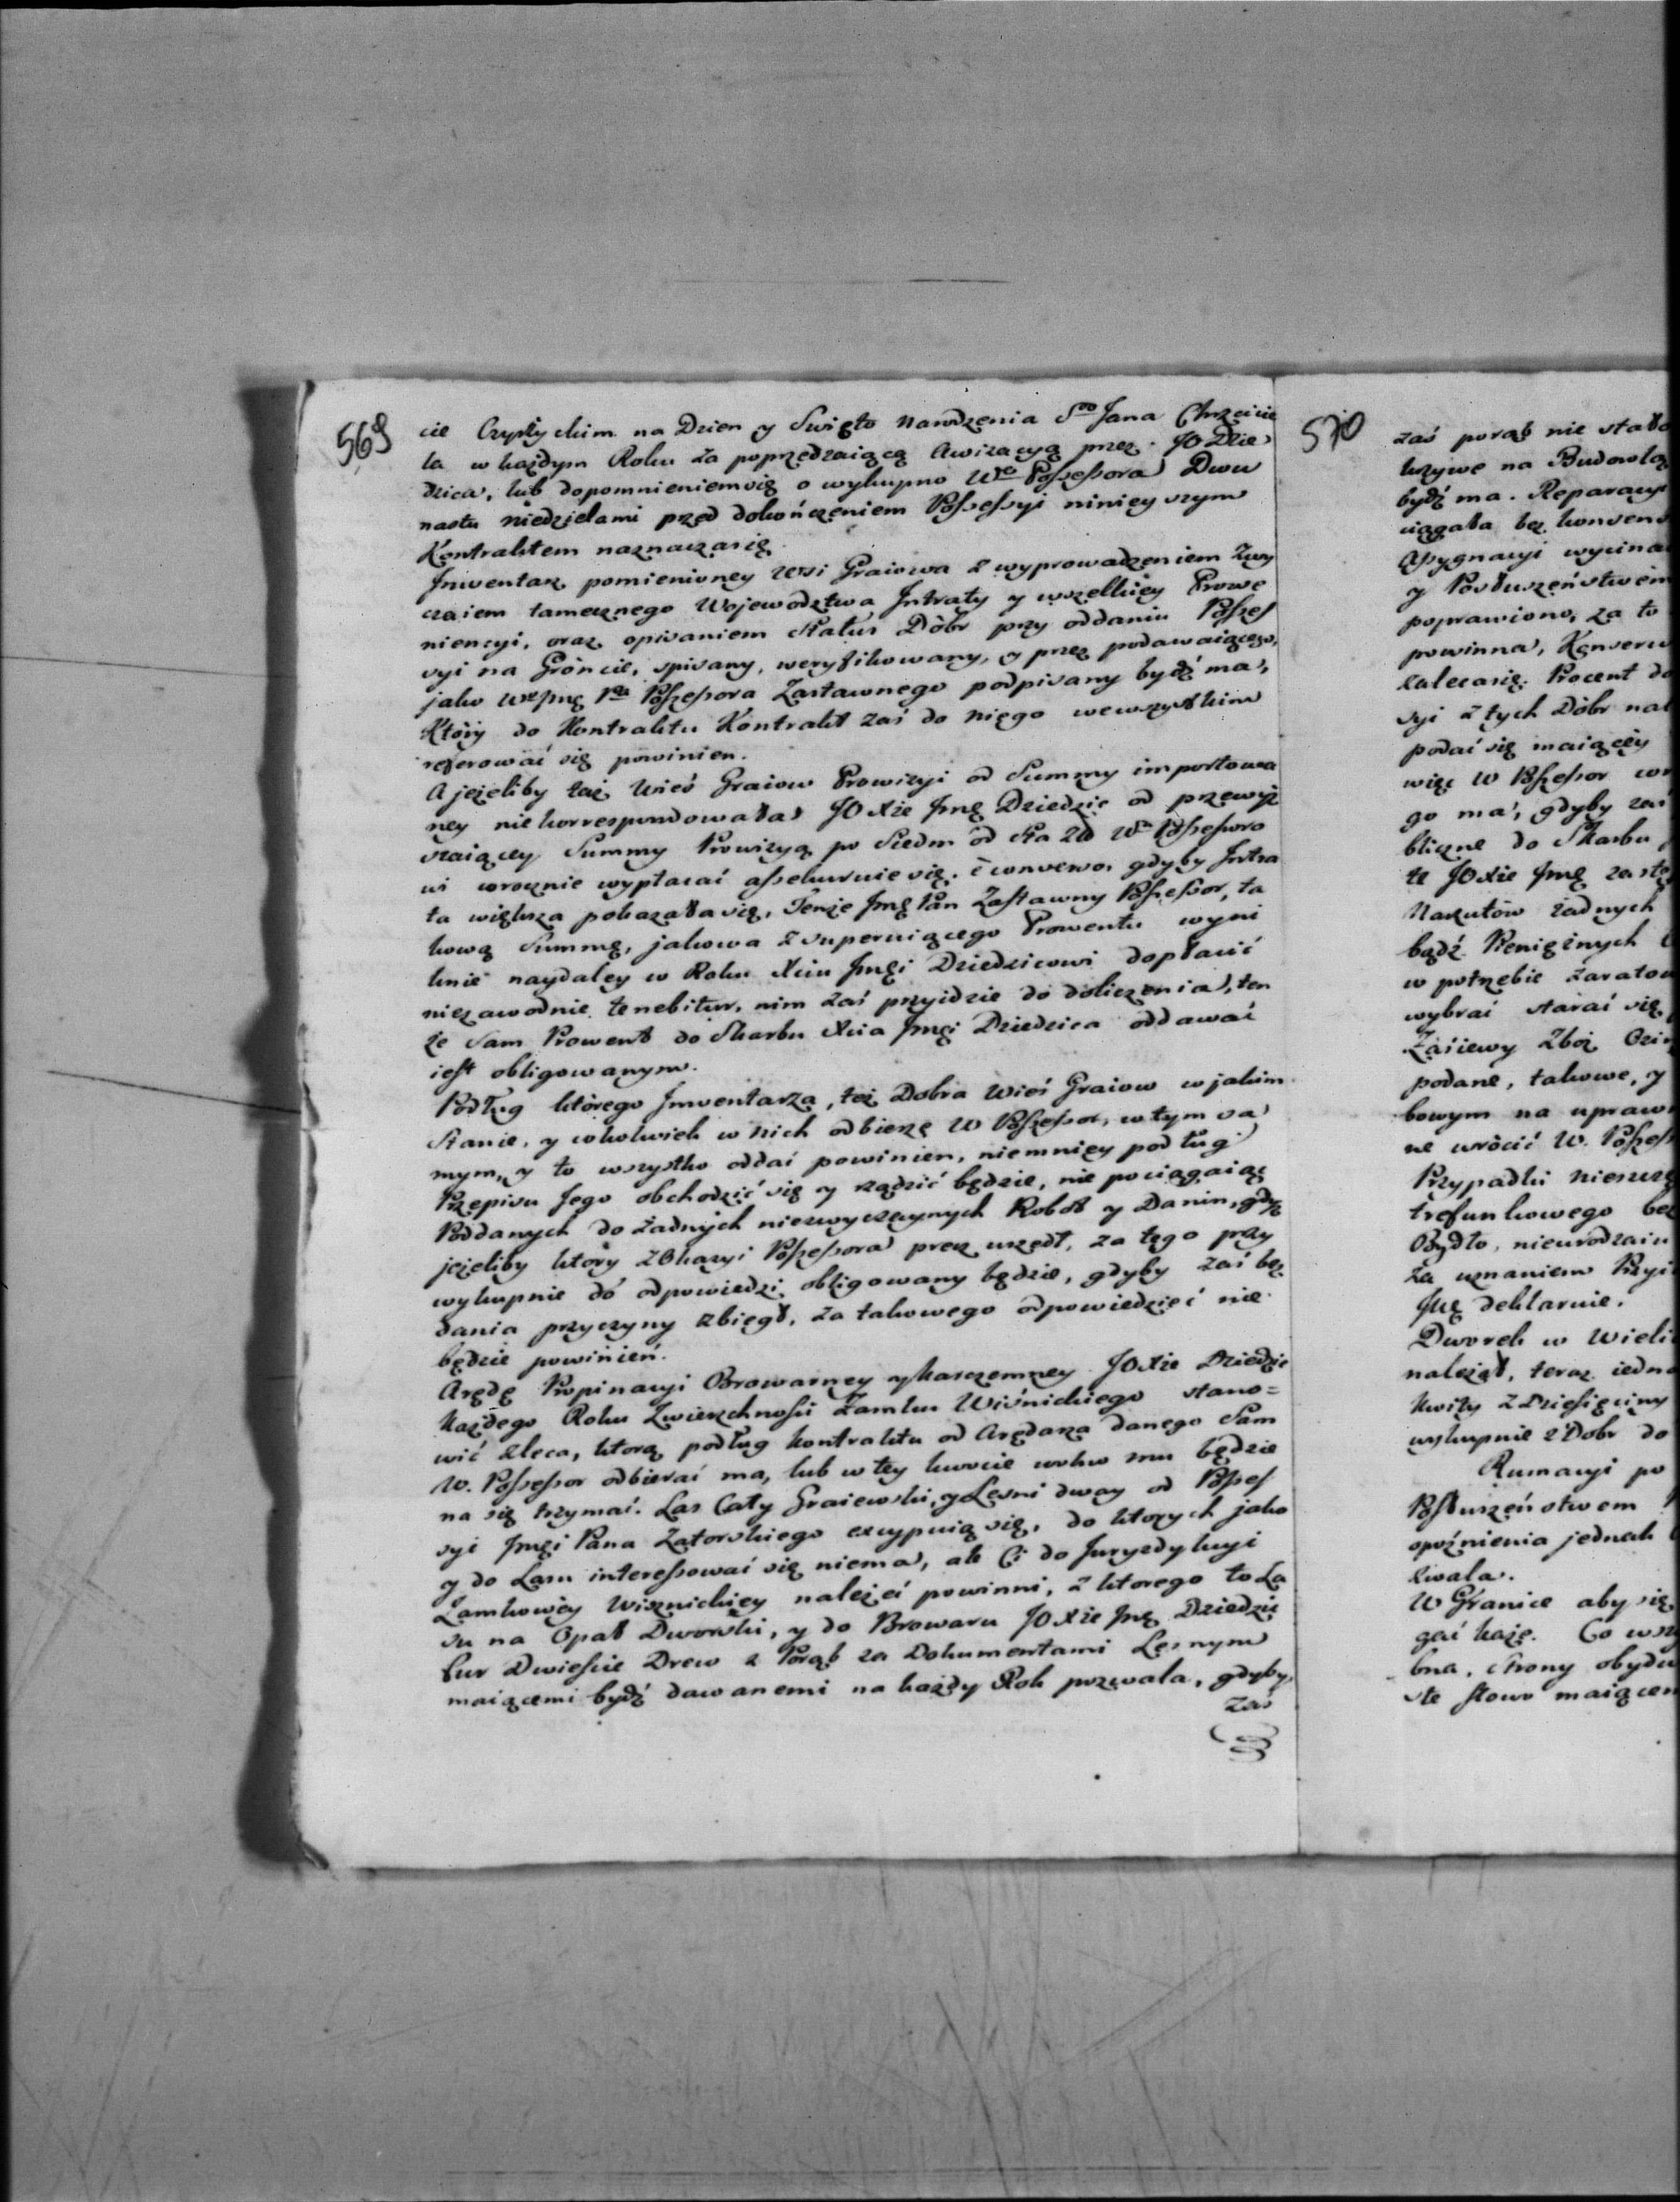 569
cie Czyskim na Dzien y Swięto Narodzenia Sgo Jana Chrzcicie
la w każdym Roku za poprzedzaiącą Awizacyą przez JO Dzie
dzica, lub dopomnieniemsię o wykupno Wgo Possessora Dwu
nastu Niedzielami przed dokończeniem Possessyi ninieyszym
Kontraktem naznaczasię.
Inwentarz pomienioney Wsi Graiowa z wyprowadzeniem Zwy
czaiem tamecznego Województwa Intraty y wszelkiey Prowe
niencyi, oraz opisaniem Status Dóbr przy oddaniu Posses
syi na Gróncie, spisany, weryfikowany, y przez podawaiącego,
jako Possessora Zastawnego podpisany bydź ma,
Który do Kontraktu Kontrakt zaś do niego wewszystkim
referować się powinien.
A jeżeliby taż Wieś Graiow Prowizyi od Summy importowa
ney niekorrespondowała JO Xże Jmę Dziedzic od przewyż
szaiącey Summy Prowizyą po Siedm od Sta Possessoro
wi wrocznie wypłacać assekuruie się. è converso, gdyby Intra
ta większa pokazała się, Tenże Jmę Pan Zastawny Possessor, ta
kową Summę, jakowa z superuiącego Prowentu wyni
knie naydaley w Roku Xciu Jmęi Dziedzicowi dopłacić
niezawodnie tenebitur, nim zaś przyidzie do doliczenia, ten
że sam Prowent do Skarbu Xcia Jmęi Dziedzica oddawać
iest obligowanym.
Podług którego Inwentarza, też Dobra Wieś Graiow w jakim
Stanie, y cokolwiek w nich odbierze W Possessor, w tym sa
mym, y to wszystko oddać powinien, niemniey podług
Przepisu Jego obchodzić się y rządzić będzie, nie pociągaiąc
Poddanych do żadnych niezwyczaynych Robót y Danin, gdyż
jeżeliby który z Okazyi Possessora precz uszedł, za tego przy
wykupnie do odpowiedzi obligowany będzie, gdyby zaś bez
dania przyczyny zbiegł, za takowego odpowiedzieć nie
będzie powinien.
Arędę Propinacyi Browarney y karczemney JO Xże Dziedzic
Każdego Roku Zwierzchności Zamku Wiśnickiego stano=
wić zleca, którą podług kontraktu od Arędarza danego Sam
W. Possessor odbierać ma, lub w tey kwocie wolno mu będzie
na się trzymać. Las Cały Graiewski, y Leśni dway od Posses
syi Jmęi Pana Zatorskiego excypuią się, do których jako
y do Lasu interessować się niema, ale Ci do Juryzdykcyi
Zamkowey Wisznickiey należeć powinni, z którego to La
su na Opał Dworski, y do Browaru JO Xże Jmę Dziedzic
Fur Dwieście Drew z Porąb za Dokumentami Leśnym
maiącemi bydź dawanemi na każdy Rok pozwala, gdyby
zaś
570
zaś porąb nie stało
krzywe na Budowlą
bydź ma. Reparacye
ciągała bez konsens
Assygnacyi wycina
y Posłuszeństwem
poprawiono, za to
powinna, Konserw
zalecasię. Procent do
syi z tych Dóbr nal
podać się maiącey
więc W Possessor
go ma, gdyby zaś
bliczne do Skarbu
te JO Xże Jmę zastę
Narzutów żadnych
bądź Pieniężnych
w potrzebie zaratow
wybrać starać się
Zasiewy Zbóż Ozim
podane, takowe, y
bowym na upraw
ne wrócić W. Possess
Przypadki nieszczę
trefunkowego bez
Bydło, nieurodzaiu
Za uznaniem Przyi
Jmę deklaruie.
Dworek w Wieli
należał, teraz iedna
Kwity z Dziesięciny
wykupnie z Dobr do
Rumacyi po
Posłuszeństwem
opóźnienia jednak
zwala.
W Granice aby się
gać każe. Co wsz
bna, Strony obydw
ste słowo maiącem